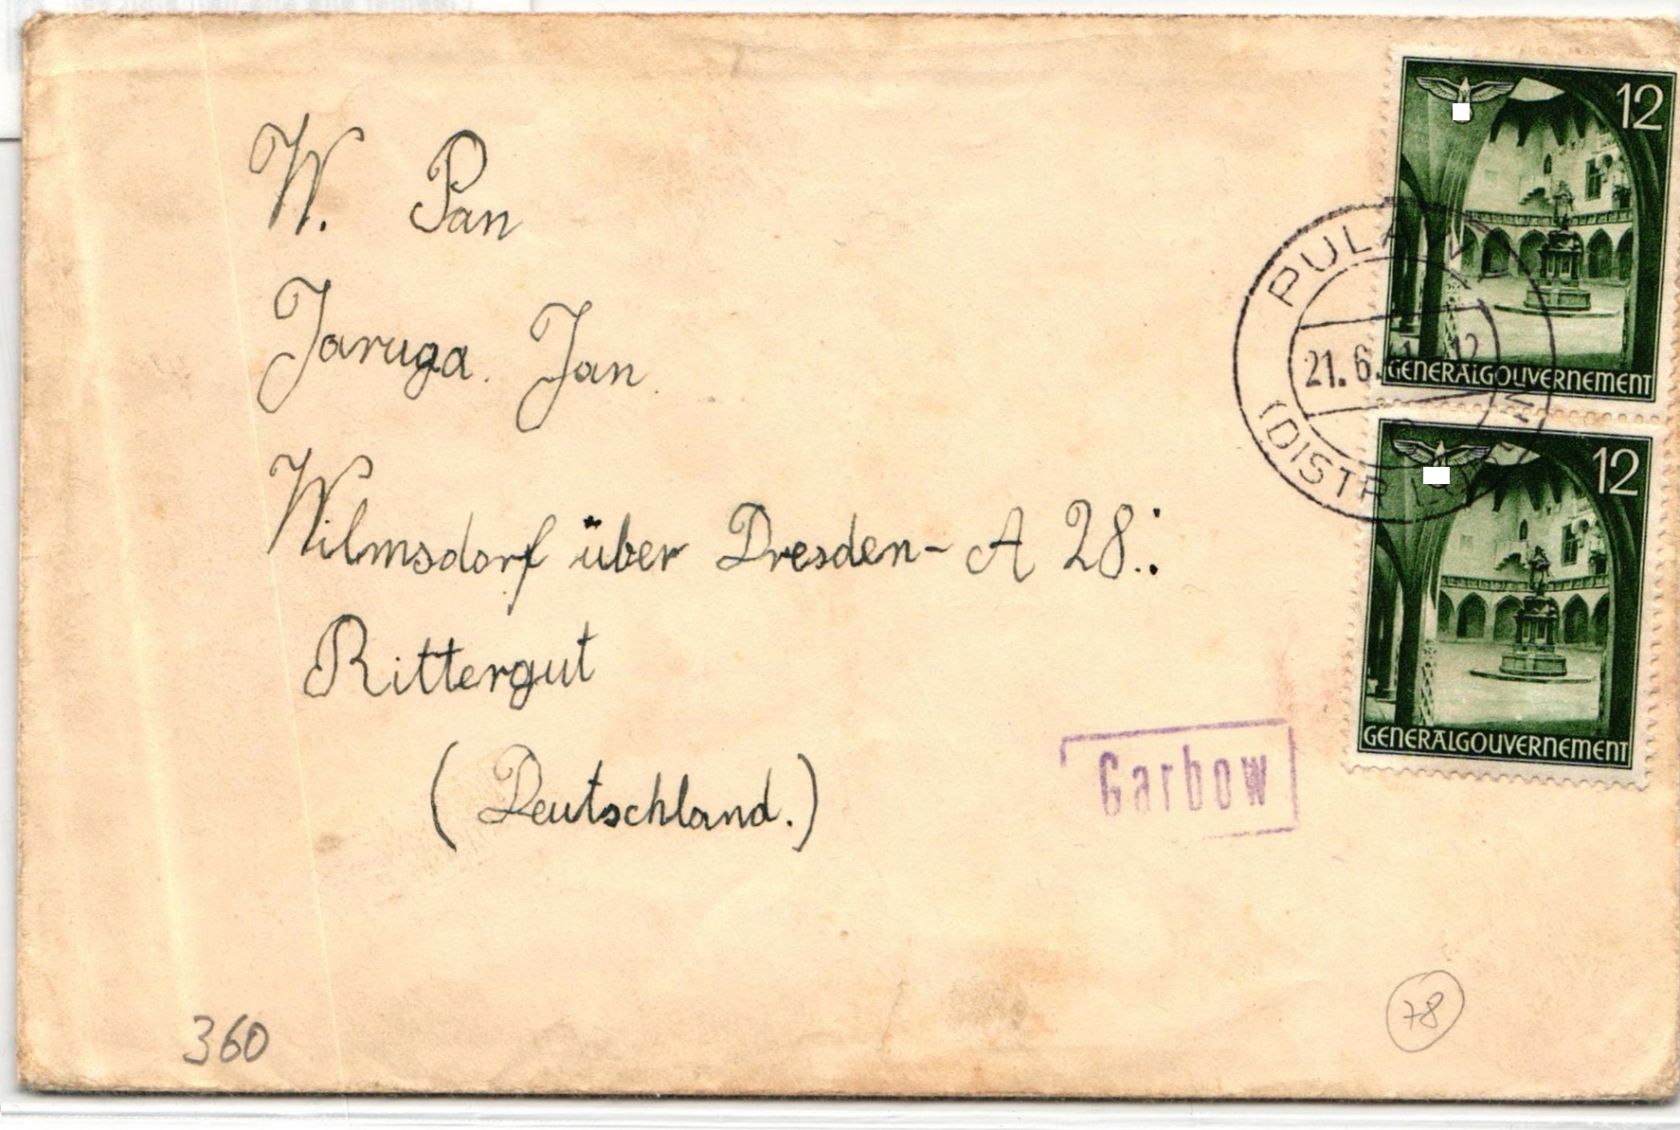 W. Pan
Jaruga Jan
Wilmsdorf über Dresden-A 28.:
Rittergut
(Deutschland.)
12
GENERALGOUVERNEMENT
12
GENERALGOUVERNEMENT
21.6.
(DISTR
Garbow
360
78